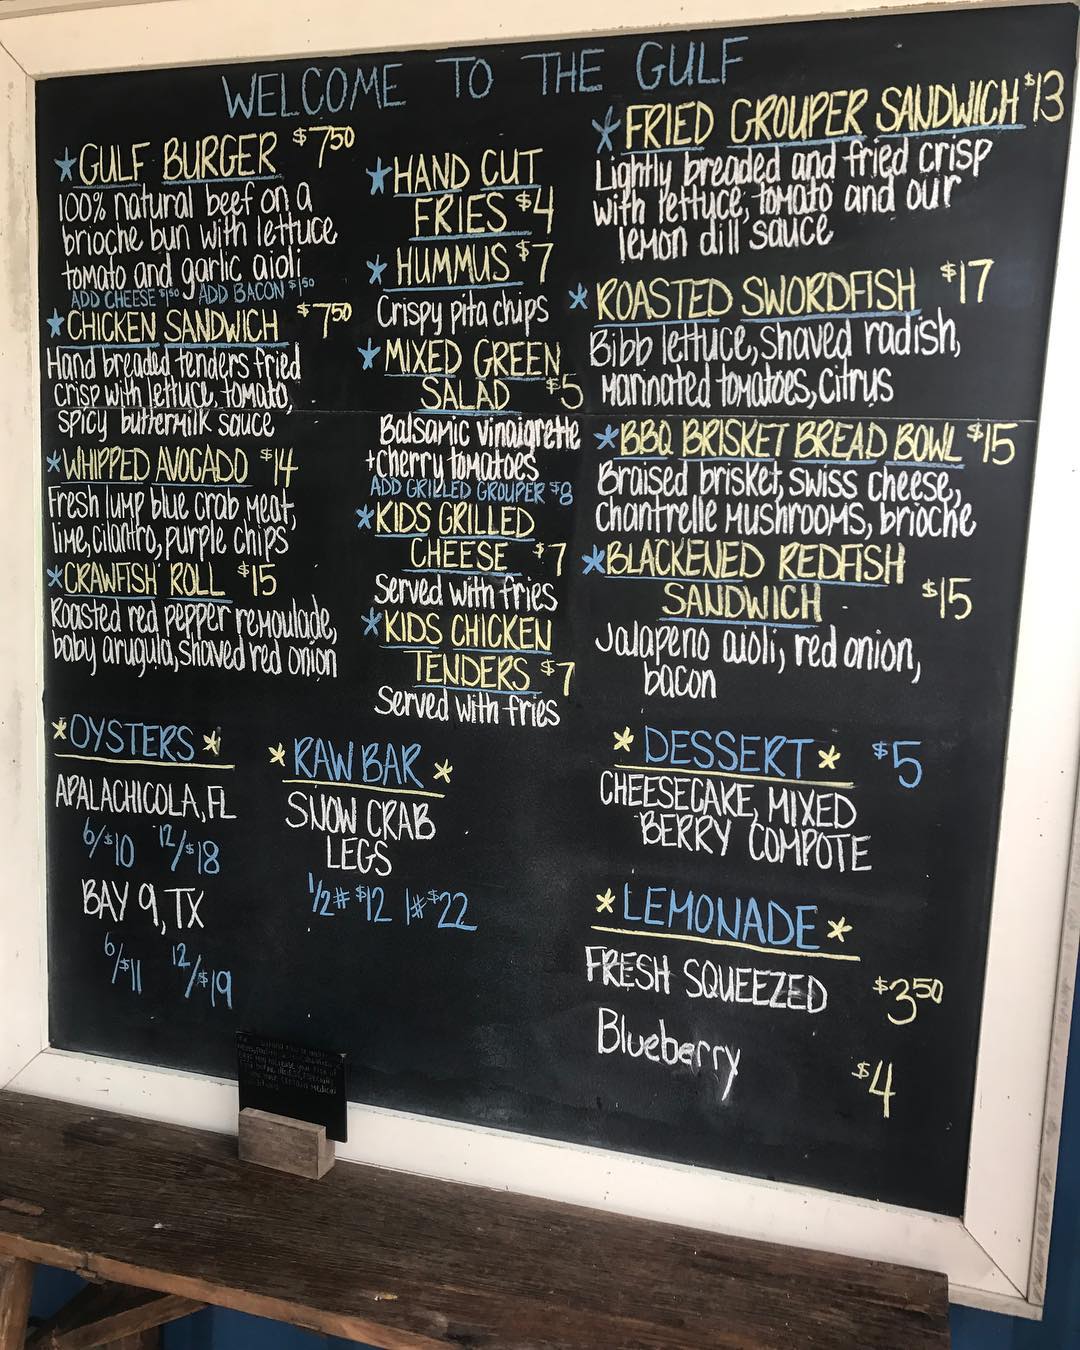 WELCOME TO THE GULF
*GULF BURGER $7 50
100% natural beef on a
brioche bun with lettuce
tomato and garlic aioli
ADD CHEESE $1 50 ADD BACON $1 50
*CHICKEN SANDWICH $7 50
Hand breaded tenders fried
crisp with lettuce, tomato,
spicy buttermilk sauce
*WHIPPED AVOCADO $14
Fresh lump blue crab meat,
lime, cilantro, purple chips
*CRAWFISH ROLL $15
Roasted red pepper remoulade,
baby arugula, shaved red onion
*HAND CUT
FRIES $4
*HUMMUS $7
Crispy pita chips
*MIXED GREEN
SALAD $5
Balsamic vinaigrette
+cherry tomatoes
ADD GRILLED GROUPER $8
*KIDS GRILLED
CHEESE $7
Served with fries
*KIDS CHICKEN
TENDERS $7
Served with fries
*FRIED GROUPER SANDWICH $13
Lightly breaded and fried crisp
with lettuce, tomato and our
lemon dill sauce
*ROASTED SWORDFISH $17
Bibb lettuce, shaved radish,
marinated tomatoes, citrus
*BBQ BRISKET BREAD BOWL $15
Braised brisket, swiss cheese,
chantrelle mushrooms, brioche
*BLACKENED REDFISH
SANDWICH $15
Jalapeno aioli, red onion,
bacon
*OYSTERS*
APALACHICOLA, FL
6/$10 12/$18
BAY 9, TX
6/$11 12/$19
*RAW BAR*
SNOW CRAB
LEGS
1/2# $12 1# $22
*DESSERT* $5
CHEESECAKE, MIXED
BERRY COMPOTE
*LEMONADE*
FRESH SQUEEZED $3 50
Blueberry $4